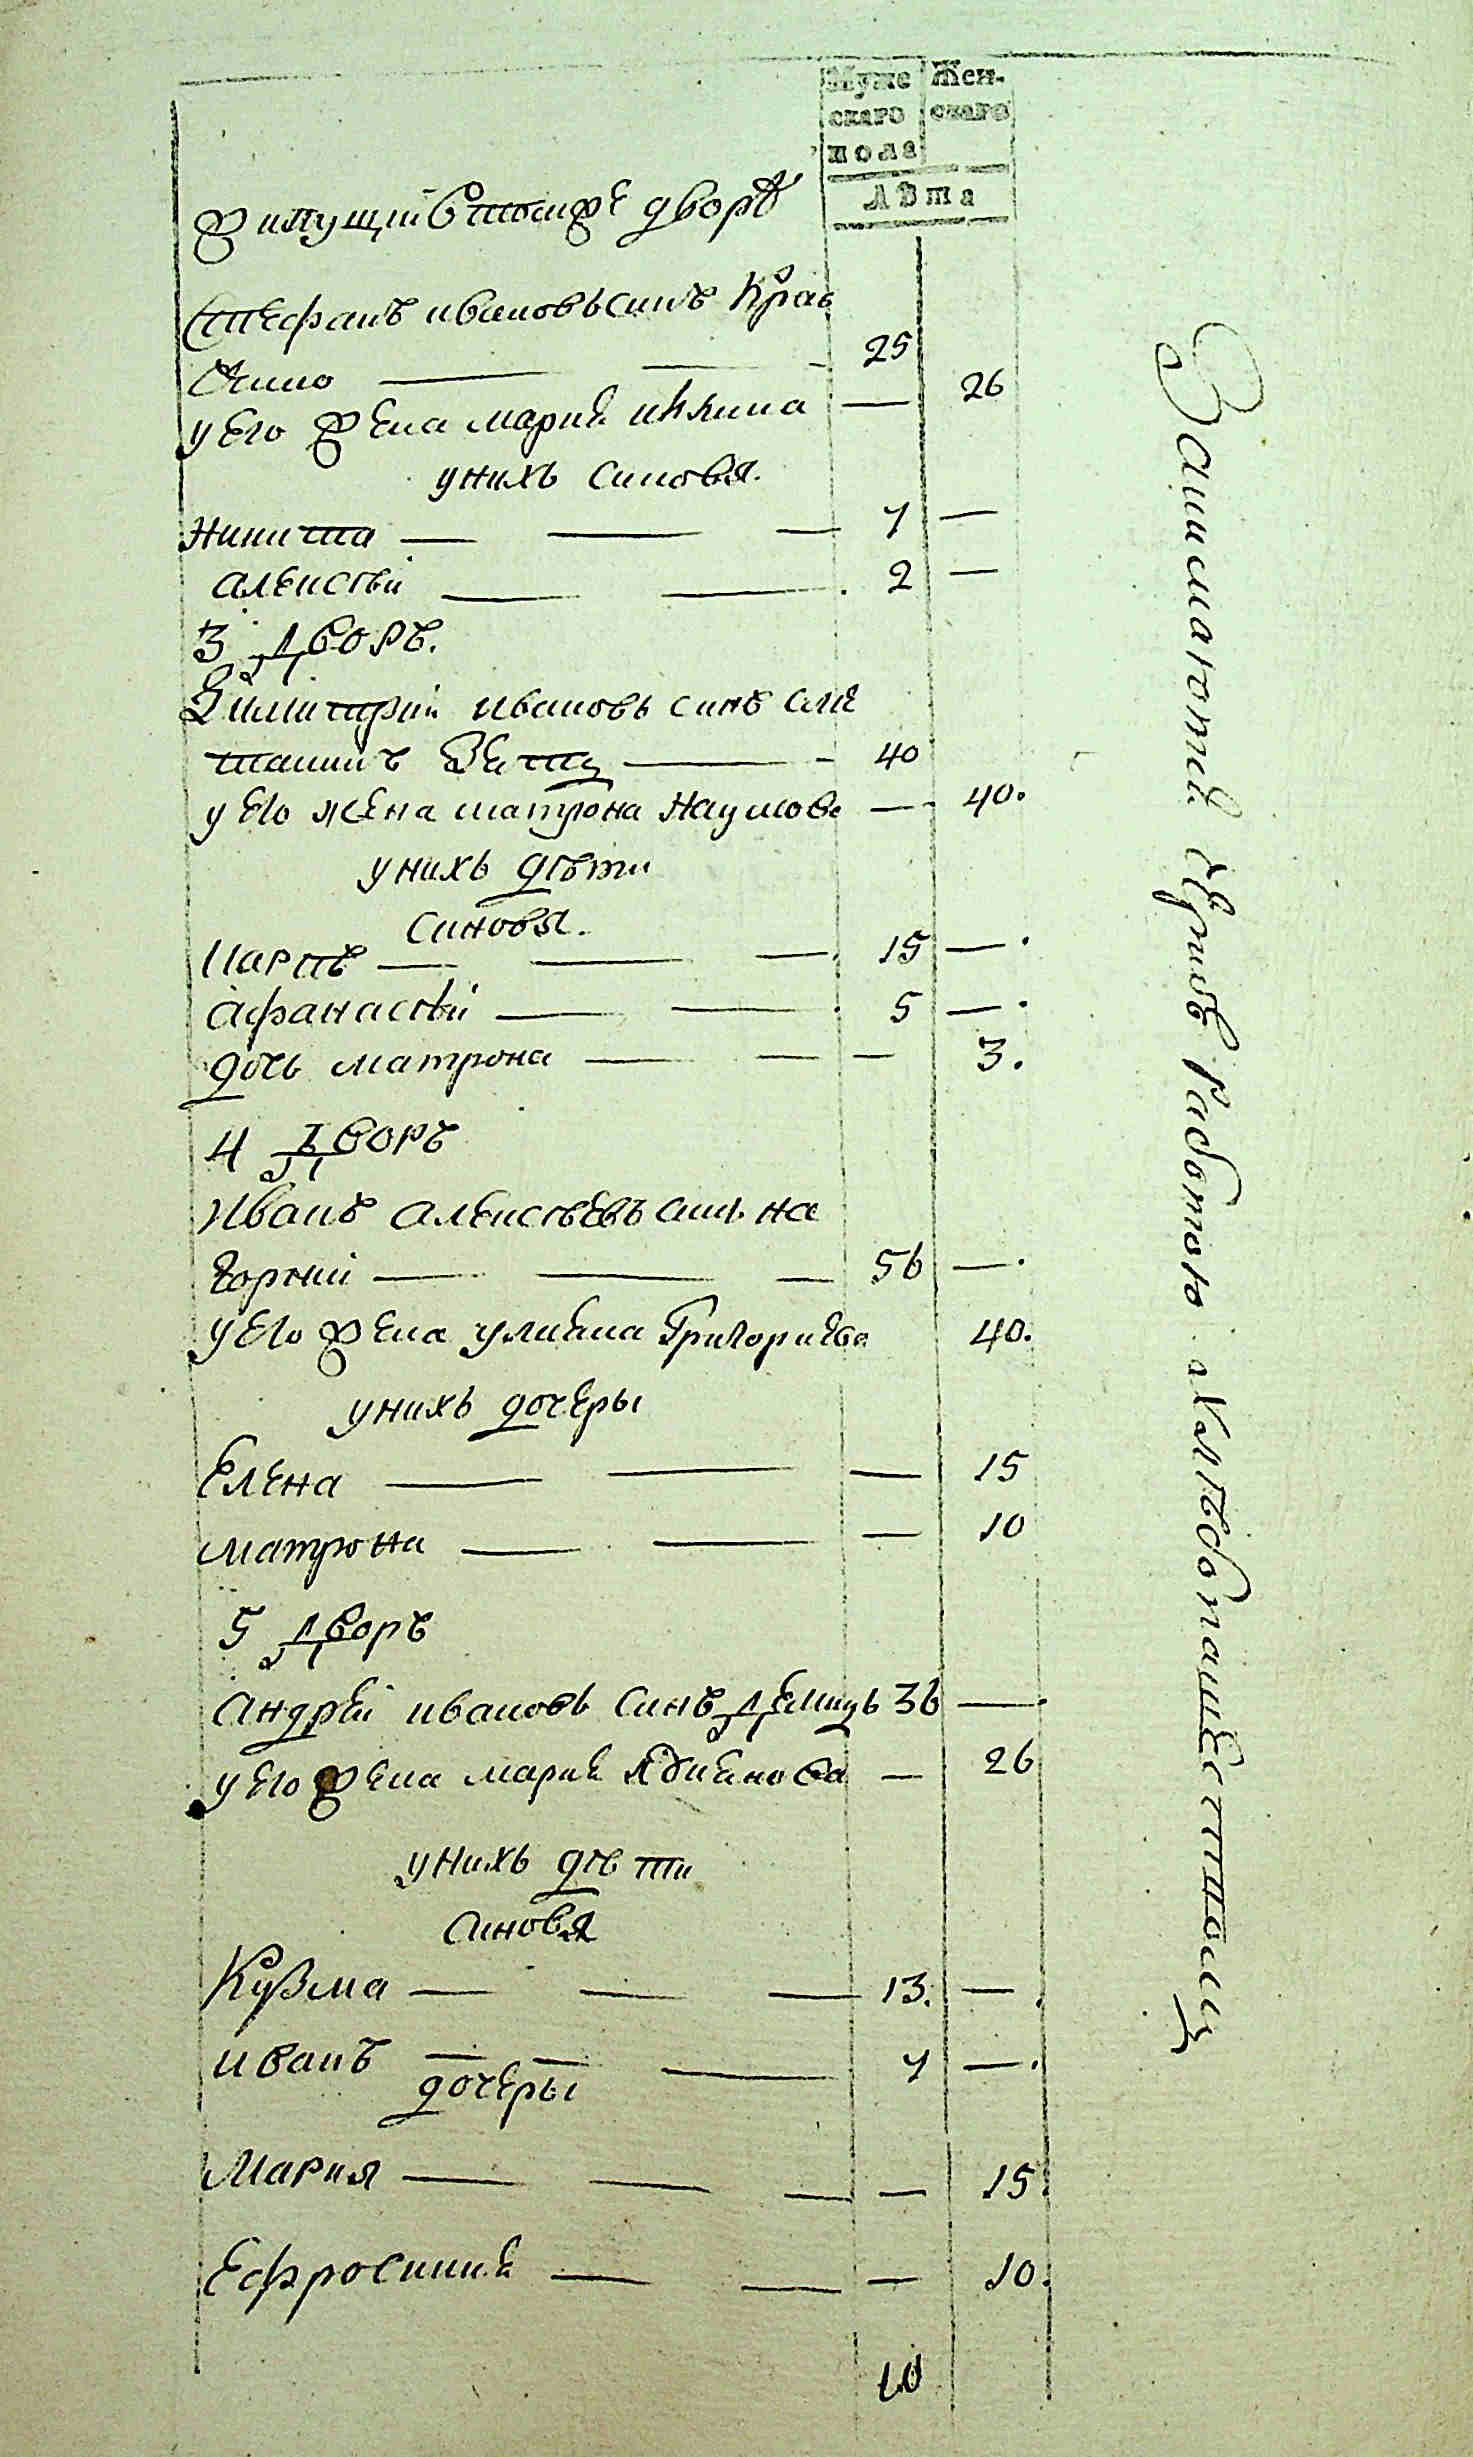 Муже Жен-
скаго скаго
пола
Лѣта
живущий втомже дворѣ
Стефанъ ивановъ синъ Крав
ченко — — 25
у его жена мария — 26
унихъ синовя.
Никита — — — 7 —
алексѣй — — 2 —
3 Дворъ.
Димитрий ивановъ синъ
— - 40
у его жена матрона Наумова — 40.
унихъ дѣти
синовя.
Карпъ — — — 15 —
афанасѣй — — 5 —
дочь матрона — — — 3.
4 Дворъ
Иванъ алексѣевъ синъ на
горний — — — 56 —
у его жена улияна Григориева 40.
унихъ дочеры
Елена — — — 15
матрона — — — 10
5 Дворъ
андрей ивановъ синъ 36 —
у его жена мария — 26
унихъ дѣти
синовя
Кузма — — — 13. —
иванъ — — — 7 —
дочеры
Мария — — — — 15.
Ефросиния — — — 10.
10
Занимаются работою и хлѣбопашествомъ